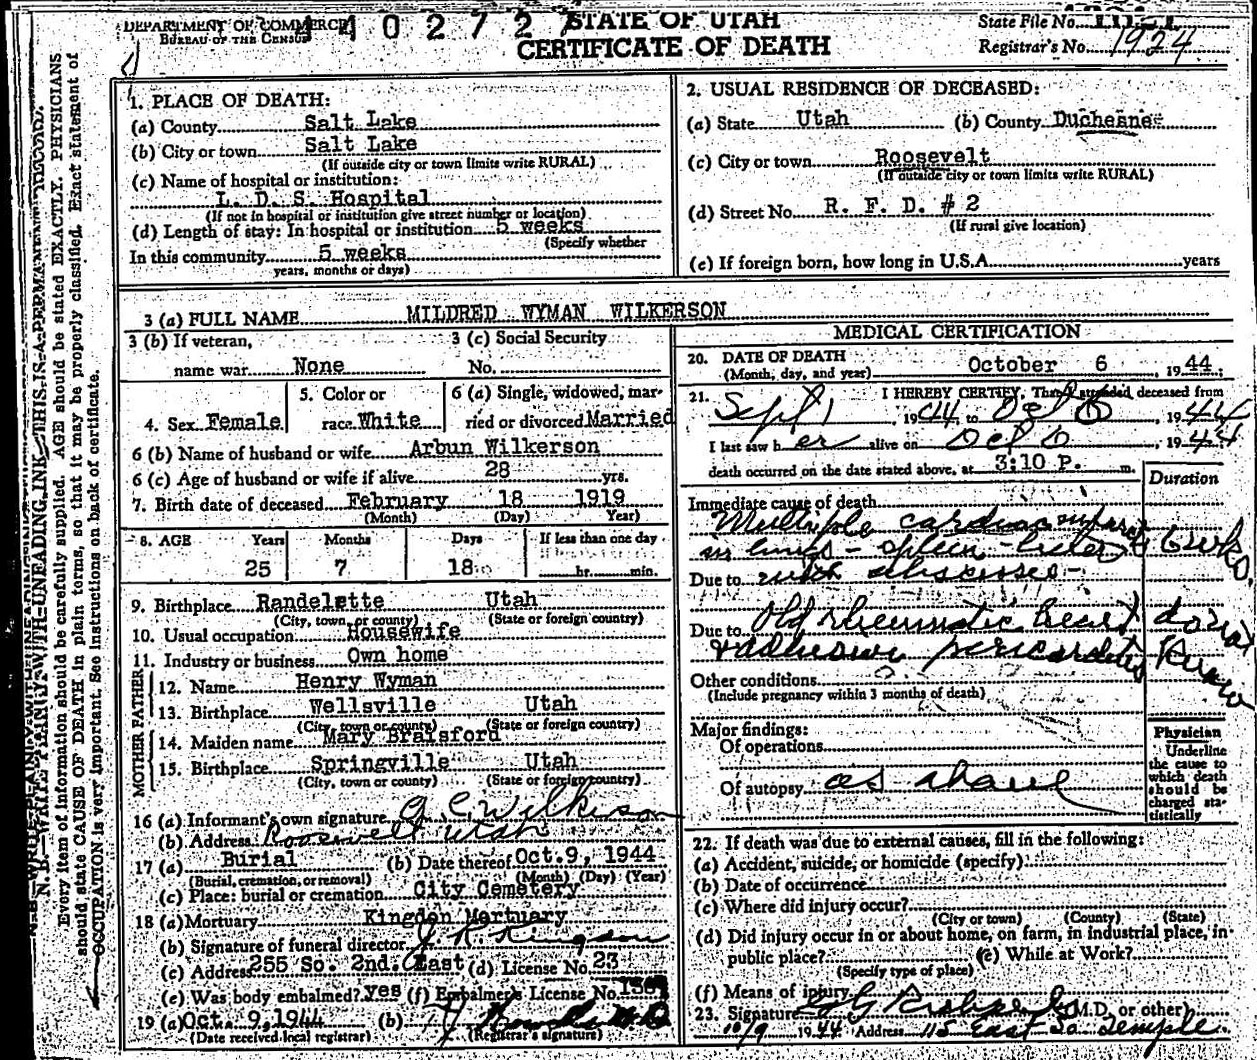 DEPARTMENT OF COMMERCE
BUREAU OF THE CENSUS
STATE OF UTAH
CERTIFICATE OF DEATH
State File No.
Registrar's No. 1924
1. PLACE OF DEATH:
(a) County Salt Lake
(b) City or town Salt Lake
(If outside city or town limits write RURAL)
(c) Name of hospital or institution:
L. D. S. Hospital
(If not in hospital or institution give street number or location)
(d) Length of stay: In hospital or institution 5 weeks
(Specify whether
In this community 5 weeks
years, months or days)
2. USUAL RESIDENCE OF DECEASED:
(a) State Utah (b) County Duchesne
(c) City or town Roosevelt
(If outside city or town limits write RURAL)
(d) Street No. R. F. D. # 2
(If rural give location)
(e) If foreign born, how long in U.S.A. years
3 (a) FULL NAME MILDRED WYMAN WILKERSON
3 (b) If veteran, 3 (c) Social Security
name war None No.
4. Sex Female 5. Color or race White 6 (a) Single, widowed, married or divorced Married
6 (b) Name of husband or wife Arbun Wilkerson
6 (c) Age of husband or wife if alive 28 yrs.
7. Birth date of deceased February 18 1919
(Month) (Day) Year)
8. AGE Years Months Days If less than one day
25 7 18 hr. min.
9. Birthplace Randelette Utah
(City, town, or county) (State or foreign country)
10. Usual occupation Housewife
11. Industry or business Own home
FATHER
12. Name Henry Wyman
13. Birthplace Wellsville Utah
(City, town or county) (State or foreign country)
MOTHER
14. Maiden name Mary Bralsford
15. Birthplace Springville Utah
(City, town or county) (State or foreign country)
16 (a) Informant's own signature Wilkerson
(b) Address Roosevelt Utah
17 (a) Burial (b) Date thereof Oct. 9, 1944
(Burial, cremation, or removal) (Month) (Day) (Year)
(c) Place: burial or cremation City Cemetery
18 (a) Mortuary Kingdon Mortuary
(b) Signature of funeral director
(c) Address 255 So. 2nd. East (d) License No. 23
(e) Was body embalmed? yes (f) Embalmer's License No.
19 (a) Oct. 9, 1944 (b)
(Date received local registrar) (Registrar's signature)
MEDICAL CERTIFICATION
20. DATE OF DEATH
(Month, day, and year) October 6, 1944
21. I HEREBY CERTIFY, That I attended deceased from
Sept 1 1944, to Oct 6, 1944
I last saw her alive on Oct 6, 1944
death occurred on the date stated above, at 3:10 P. m.
Duration
Immediate cause of death
Multiple cardiac infarcts
in lungs - spleen - 6 wks
Due to with abscesses -
Due to Old rheumatic heart
& adhesive pericarditis
Other conditions
(Include pregnancy within 3 months of death)
Major findings:
Of operations
Of autopsy as above
Physician
Underline
the cause to
which death
should be
charged sta-
tistically
22. If death was due to external causes, fill in the following:
(a) Accident, suicide, or homicide (specify)
(b) Date of occurrence
(c) Where did injury occur?
(City or town) (County) (State)
(d) Did injury occur in or about home, on farm, in industrial place, in
public place? (e) While at Work?
(Specify type of place)
(f) Means of injury
23. Signature (M.D. or other)
10/9 1944 Address 115 East So Temple
N. B.—WRITE PLAINLY WITH UNFADING INK—THIS IS A PERMANENT RECORD.
Every item of information should be carefully supplied. AGE should be stated EXACTLY. PHYSICIANS
should state CAUSE OF DEATH in plain terms, so that it may be properly classified. Exact statement of
OCCUPATION is very important. See instructions on back of certificate.